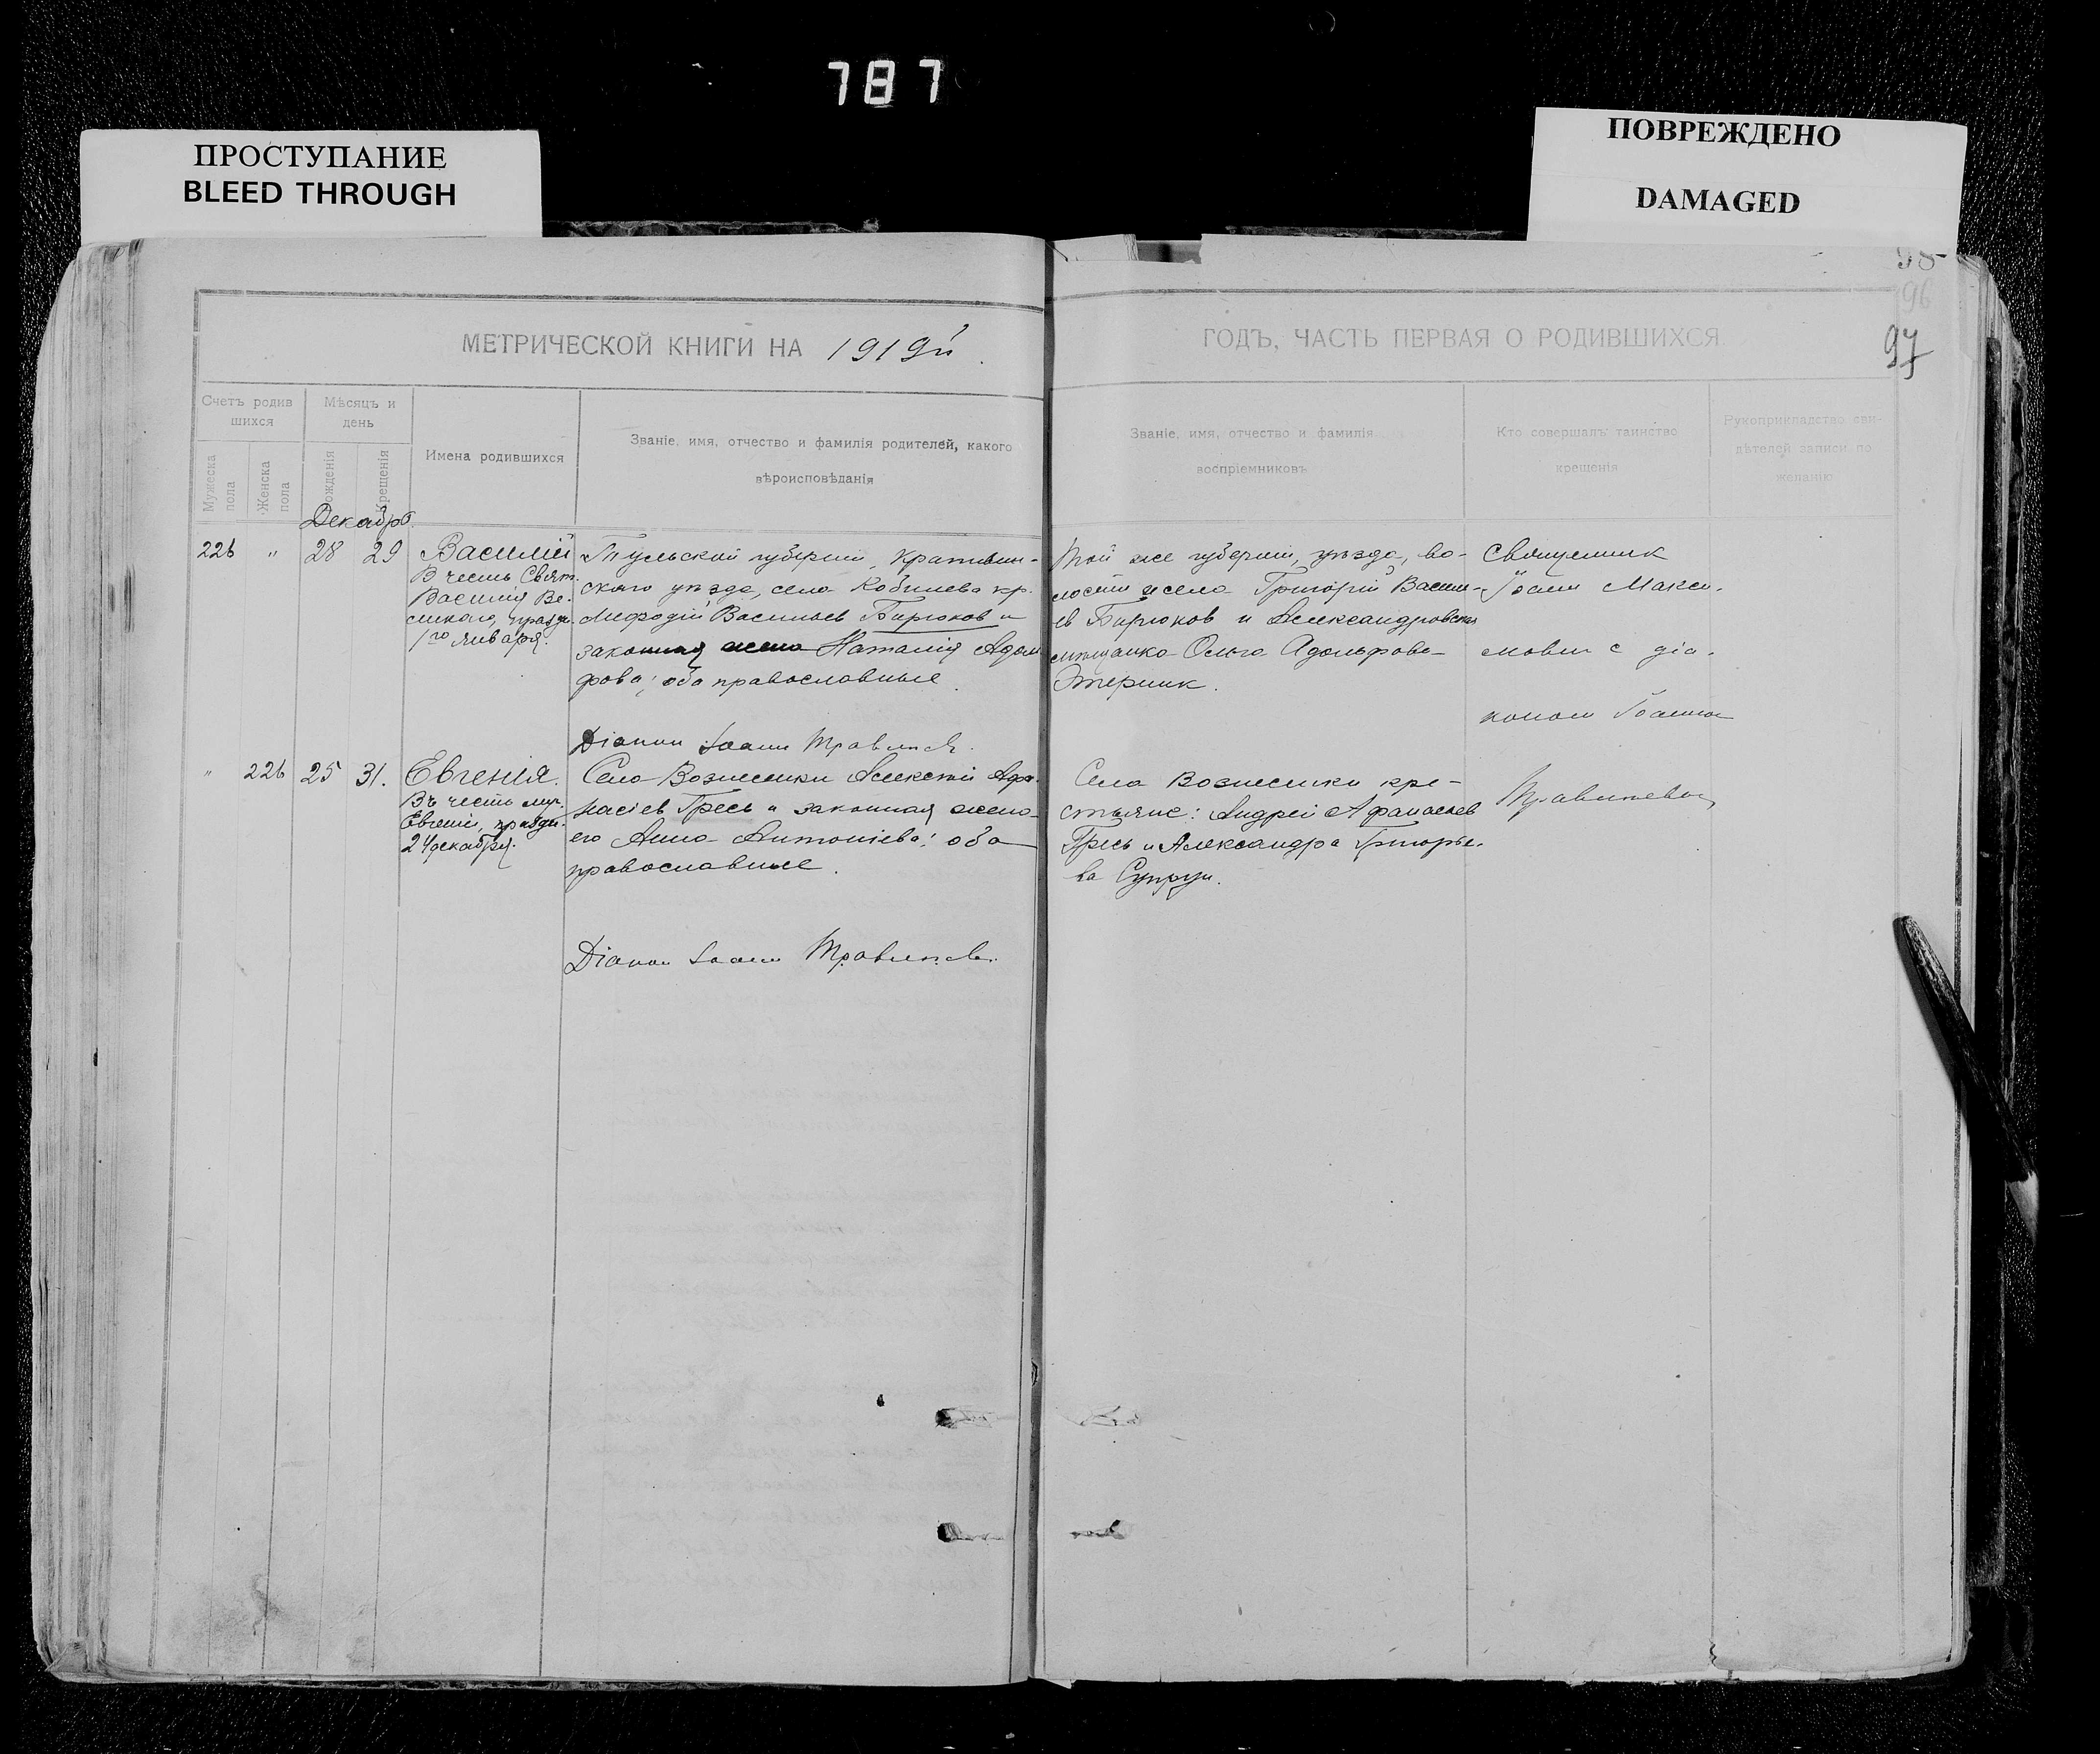 787
ПРОСТУПАНИЕ
BLEED THROUGH
ПОВРЕЖДЕНО
DAMAGED
98
96
97
МЕТРИЧЕСКОЙ КНИГИ НА 1919й
ГОДЪ, ЧАСТЬ ПЕРВАЯ О РОДИВШИХСЯ.
Счетъ родив
шихся
Мужеска
пола
Женска
пола
Мѣсяцъ и
день
Рожденія
Крещенія
Имена родившихся
Званіе, имя, отчество и фамилія родителей, какого
вѣроисповѣданія
Званіе, имя, отчество и фамилія
воспріемниковъ
Кто совершалъ таинство
крещенія
Рукоприкладство сви-
дѣтелей записи по
желанію
Декабрь
226 " 28 29
Василій
В честь Свят.
Василія Ве-
ликаго, праздн.
1го января.
Тульской губерніи, Крапивин-
скаго уѣзда, села Кобылева кр.
Мефодій Васильев Бирюков и
законная жена Наталія Адоль
фова; оба православные.
Діакон Іоанн Травинск.
Той же губерніи, уѣзда, во-
лости и села Григорій Василь-
ев Бирюков и Александровская
мѣщанка Ольга Адольфова
Священник
Іоанн Макси-
мович с діа-
коном Іоанном
" 226 25 31.
Евгенія.
Въ честь муч.
Евгеніи, праздн.
24 декабря.
Села Вознесенки Алексѣй Афа-
насіев Гресь и законная жена
его Анна Антоніева; оба
православные.
Діакон Іоанн Травинск.
Села Вознесенки кре-
стьяне: Андрей Афанасьев
Гресь и Александра Григорье-
ва Супрун.